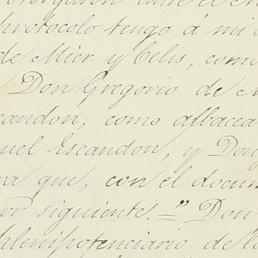 protocolo tengo á mi
de Mier y Celis, como
Don Gregorio de
candon, como albacea
uel Escandon, y Don
ra que, con el docum
or siguiente.=" Don
plenipotenciario de